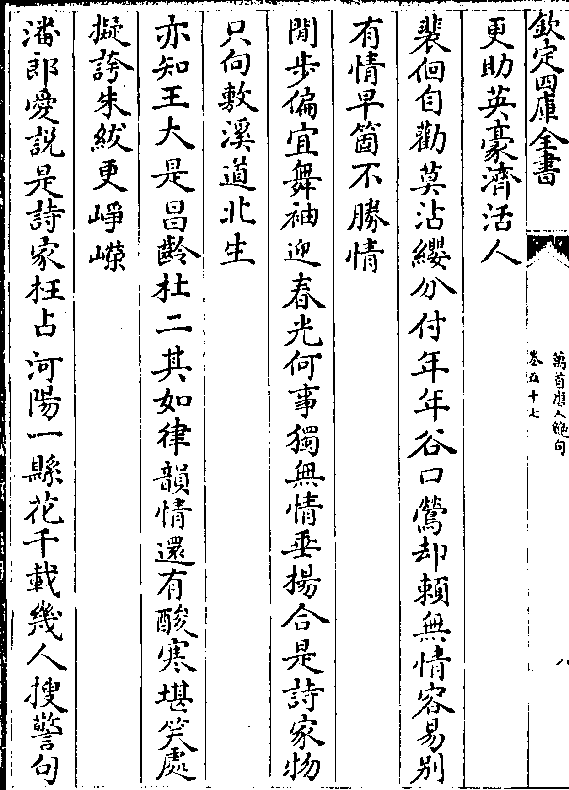 欽定四庫全書
萬首唐人絶句
卷五十七
八
更助英豪濟活人
裴佪自勸莫沾纓分付年年谷口鶯却賴無情容易别
有情早箇不勝情
閒步偏宜舞袖迎春光何事獨無情垂揚合是詩家物
只向敷溪道北生
亦知王大是昌齡杜二其如律韻情還有酸寒堪笑處
擬誇朱紱更崢嶸
潘郎愛説是詩家枉占河陽一縣花千載幾人搜警句